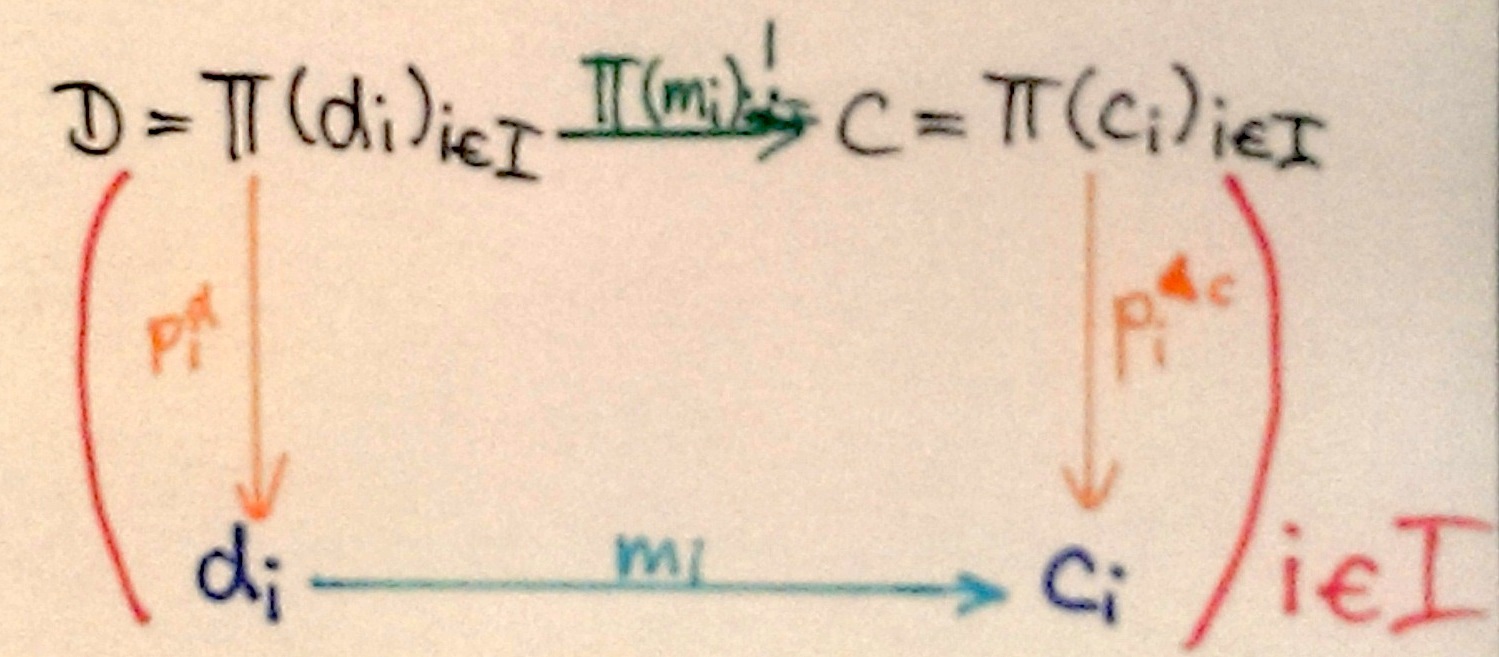 D = Π(dᵢ)i∈I Π(mᵢ) ! C = Π(cᵢ)i∈I
pᵢᵈ pᵢᶜ
dᵢ mᵢ cᵢ i∈I